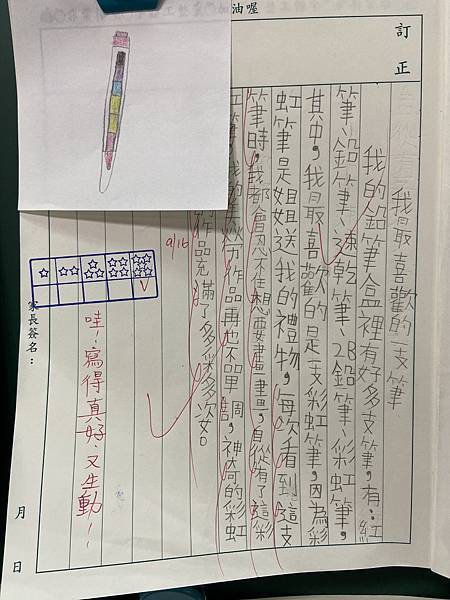 油喔
訂正
我最喜歡的一支筆
我的鉛筆盒裡有好多支筆，有：紅
筆、鉛筆、速乾筆、2B鉛筆、彩虹筆，
其中，我最喜歡的是一支彩虹筆，因為彩
虹筆是姐姐送我的禮物，每次看到這支
筆時，我都會忍不住想要畫一畫，自從有了這彩
虹筆，我的美勞作品再也不單調，神奇的彩虹
作品充滿了多彩多姿。
9/16
哇！寫得真好、又生動！
家長簽名：
月 日